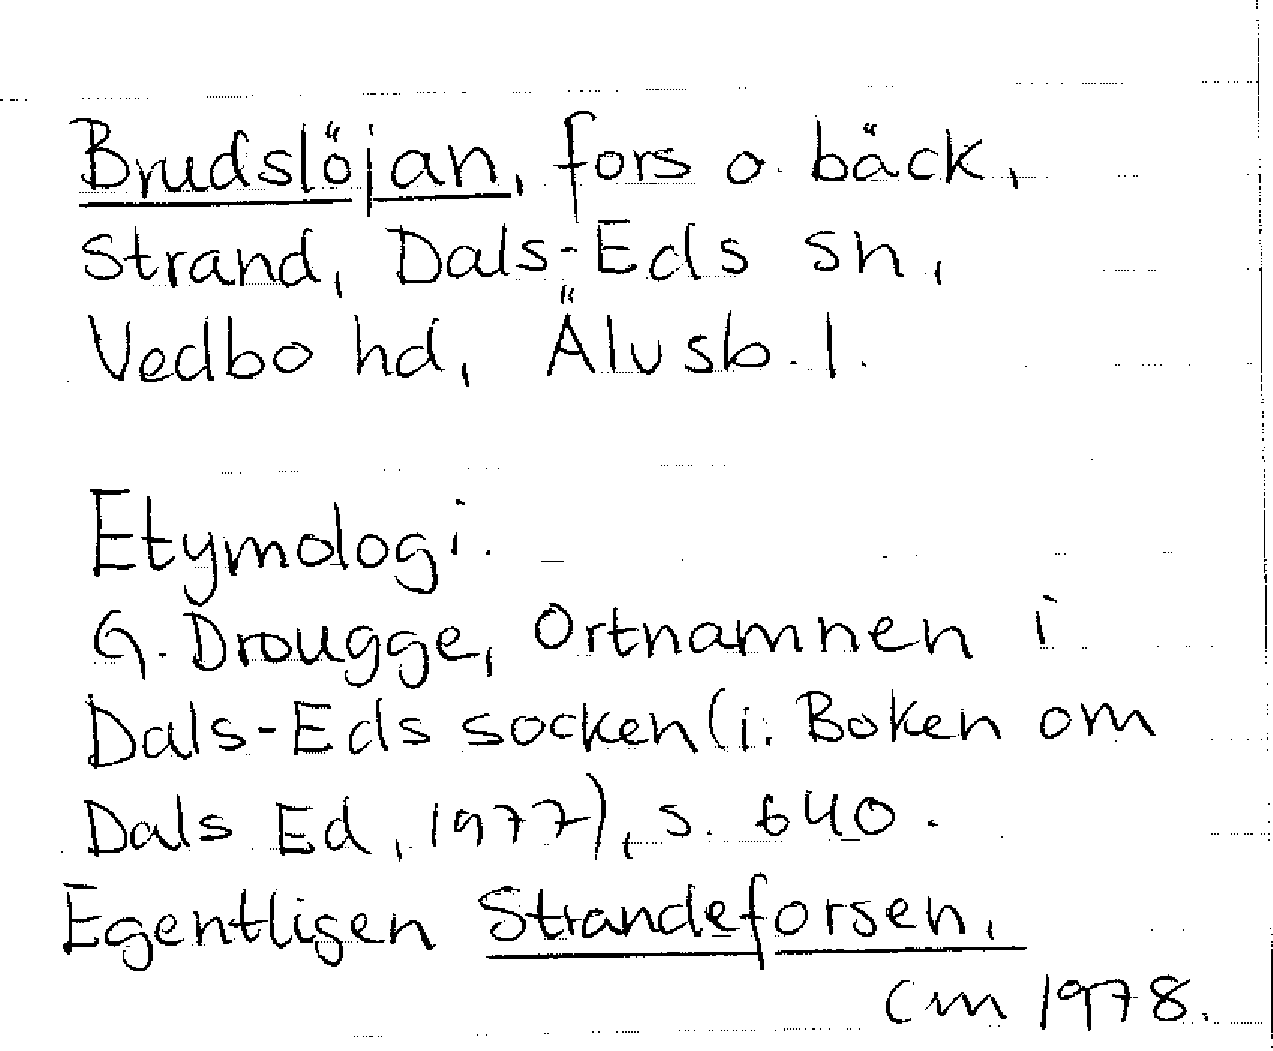 Brudslöjan, fors o. bäck,
Strand, Dals-Eds sn,
Vedbo hd, Älvsb. l.
Etymologi.
G. Drougge, Ortnamnen i
Dals-Eds socken (i: Boken om
Dals Ed, 1977), s. 640.
Egentligen Strandeforsen,
Cm 1978.